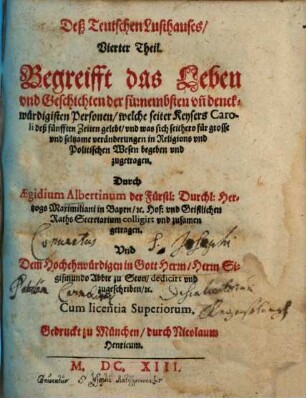 Deß Teutschen Lusthauses/
Vierter Theil.
Begreifft das Leben
vnd Geschichten der fürnembsten vn̄ denck-
würdigisten Personen/ welche seiter Keysers Caro-
li deß fünfften Zeiten gelebt/ vnd was sich seithero für grosse
vnd selzame veränderungen in Religions vnd
Politischen Wesen begeben vnd
zugetragen.
Durch
Ægidium Albertinum der Fürstl: Durchl: Her-
tzogs Maximiliani in Bayrn/ ꝛc. Hof: vnd Geistlichen
Raths Secretarium colligirt vnd zusamen
getragen.
Conventus S. Josephi
Vnd
Dem Hochehrwürdigen in Gott Herrn/ Herrn Si-
gismundo Abbte zu dedicirt vnd
zugeschriben/ ꝛc.
Cum licentia Superiorum.
Gedruckt zu München/ durch Nicolaum
Henricum.
M. DC. XIII.